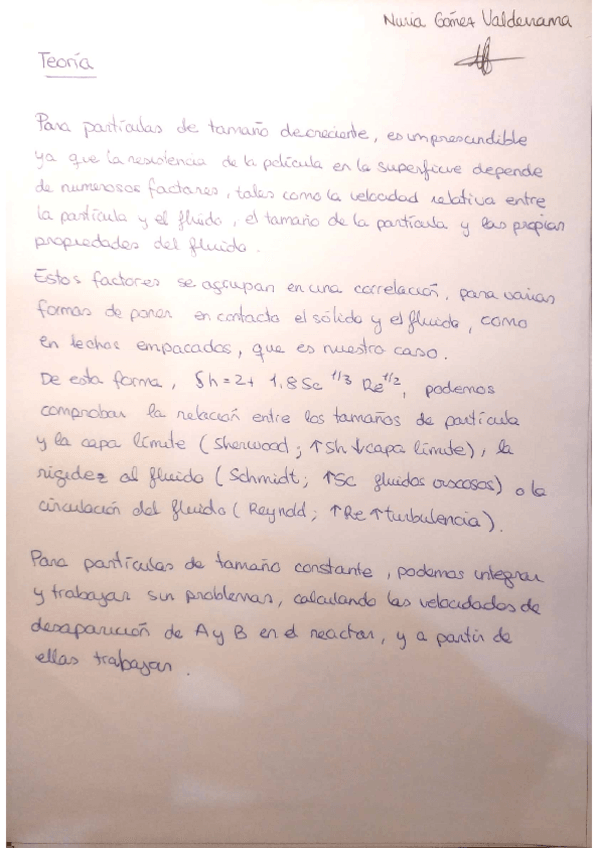 Nuria Gómez Valderrama
Teoría
Para partículas de tamaño decreciente, es imprescindible
ya que la resistencia de la película en la superficie depende
de numerosos factores, tales como la velocidad relativa entre
la partícula y el fluido, el tamaño de la partícula y las propias
propiedades del fluido.
Estos factores se agrupan en una correlación, para varias
formas de poner en contacto el sólido y el fluido, como
en lechos empacados, que es nuestro caso.
De esta forma, Sh = 2 + 1,8 Sc^1/3 Re^1/2, podemos
comprobar la relación entre los tamaños de partícula
y la capa límite (Sherwood; ↑Sh ↓capa límite), la
rigidez al fluido (Schmidt; ↑Sc fluidos viscosos) o la
circulación del fluido (Reynold; ↑Re ↑turbulencia).
Para partículas de tamaño constante, podemos integrar
y trabajar sin problemas, calculando las velocidades de
desaparición de A y B en el reactor, y a partir de
ellas trabajar.